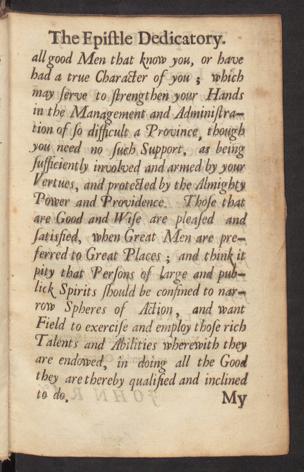 The Epiſtle Dedicatory.
all good Men that know you, or have
had a true Character of you ; which
may ſerve to ſtrengthen your Hands
in the Management and Adminiſtra-
tion of ſo difficult a Province, though
you need no ſuch Support, as being
ſufficiently involved and armed by your
Vertues, and protected by the Almighty
Power and Providence. Thoſe that
are Good and Wiſe are pleaſed and
ſatisfied, when Great Men are pre-
ferred to Great Places ; and think it
pity that Perſons of large and pub-
lick Spirits ſhould be confined to nar-
row Spheres of Action, and want
Field to exerciſe and employ thoſe rich
Talents and Abilities wherewith they
are endowed, in doing all the Good
they are thereby qualified and inclined
to do.
My